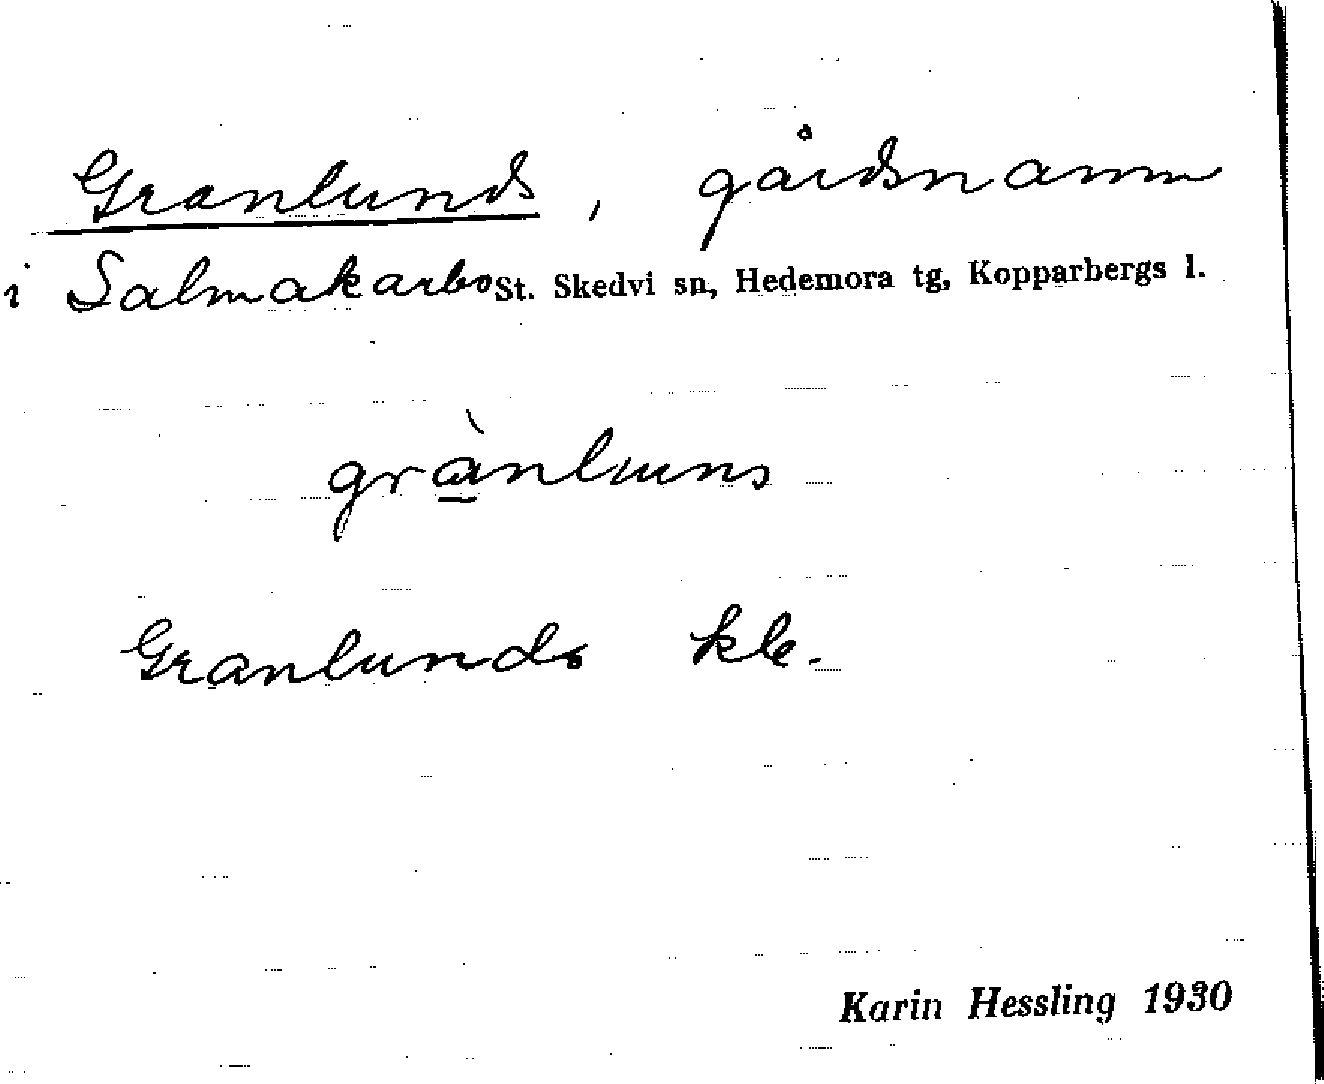 Granlunds, gårdsnamn
i Salmakarbo St. Skedvi sn, Hedemora tg, Kopparbergs l.
grànluns
Granlunds kle.
Karin Hessling 1930